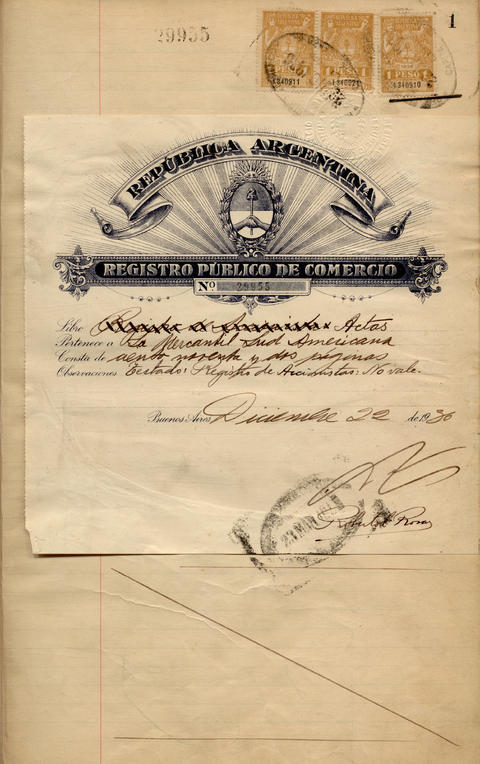 29955
1
1 PESO 1
1 PESO 1
1 PESO 1
4340911
4340921
4340910
REPÚBLICA ARGENTINA
REGISTRO PÚBLICO DE COMERCIO
Nº 29955
Libro Registro de Accionistas Actas
Pertenece a La Mercantil Sud Americana
Consta de ciento noventa y dos páginas
Observaciones Testado: Registro de Accionistas: No vale.
Buenos Aires, Diciembre 22 de 1930